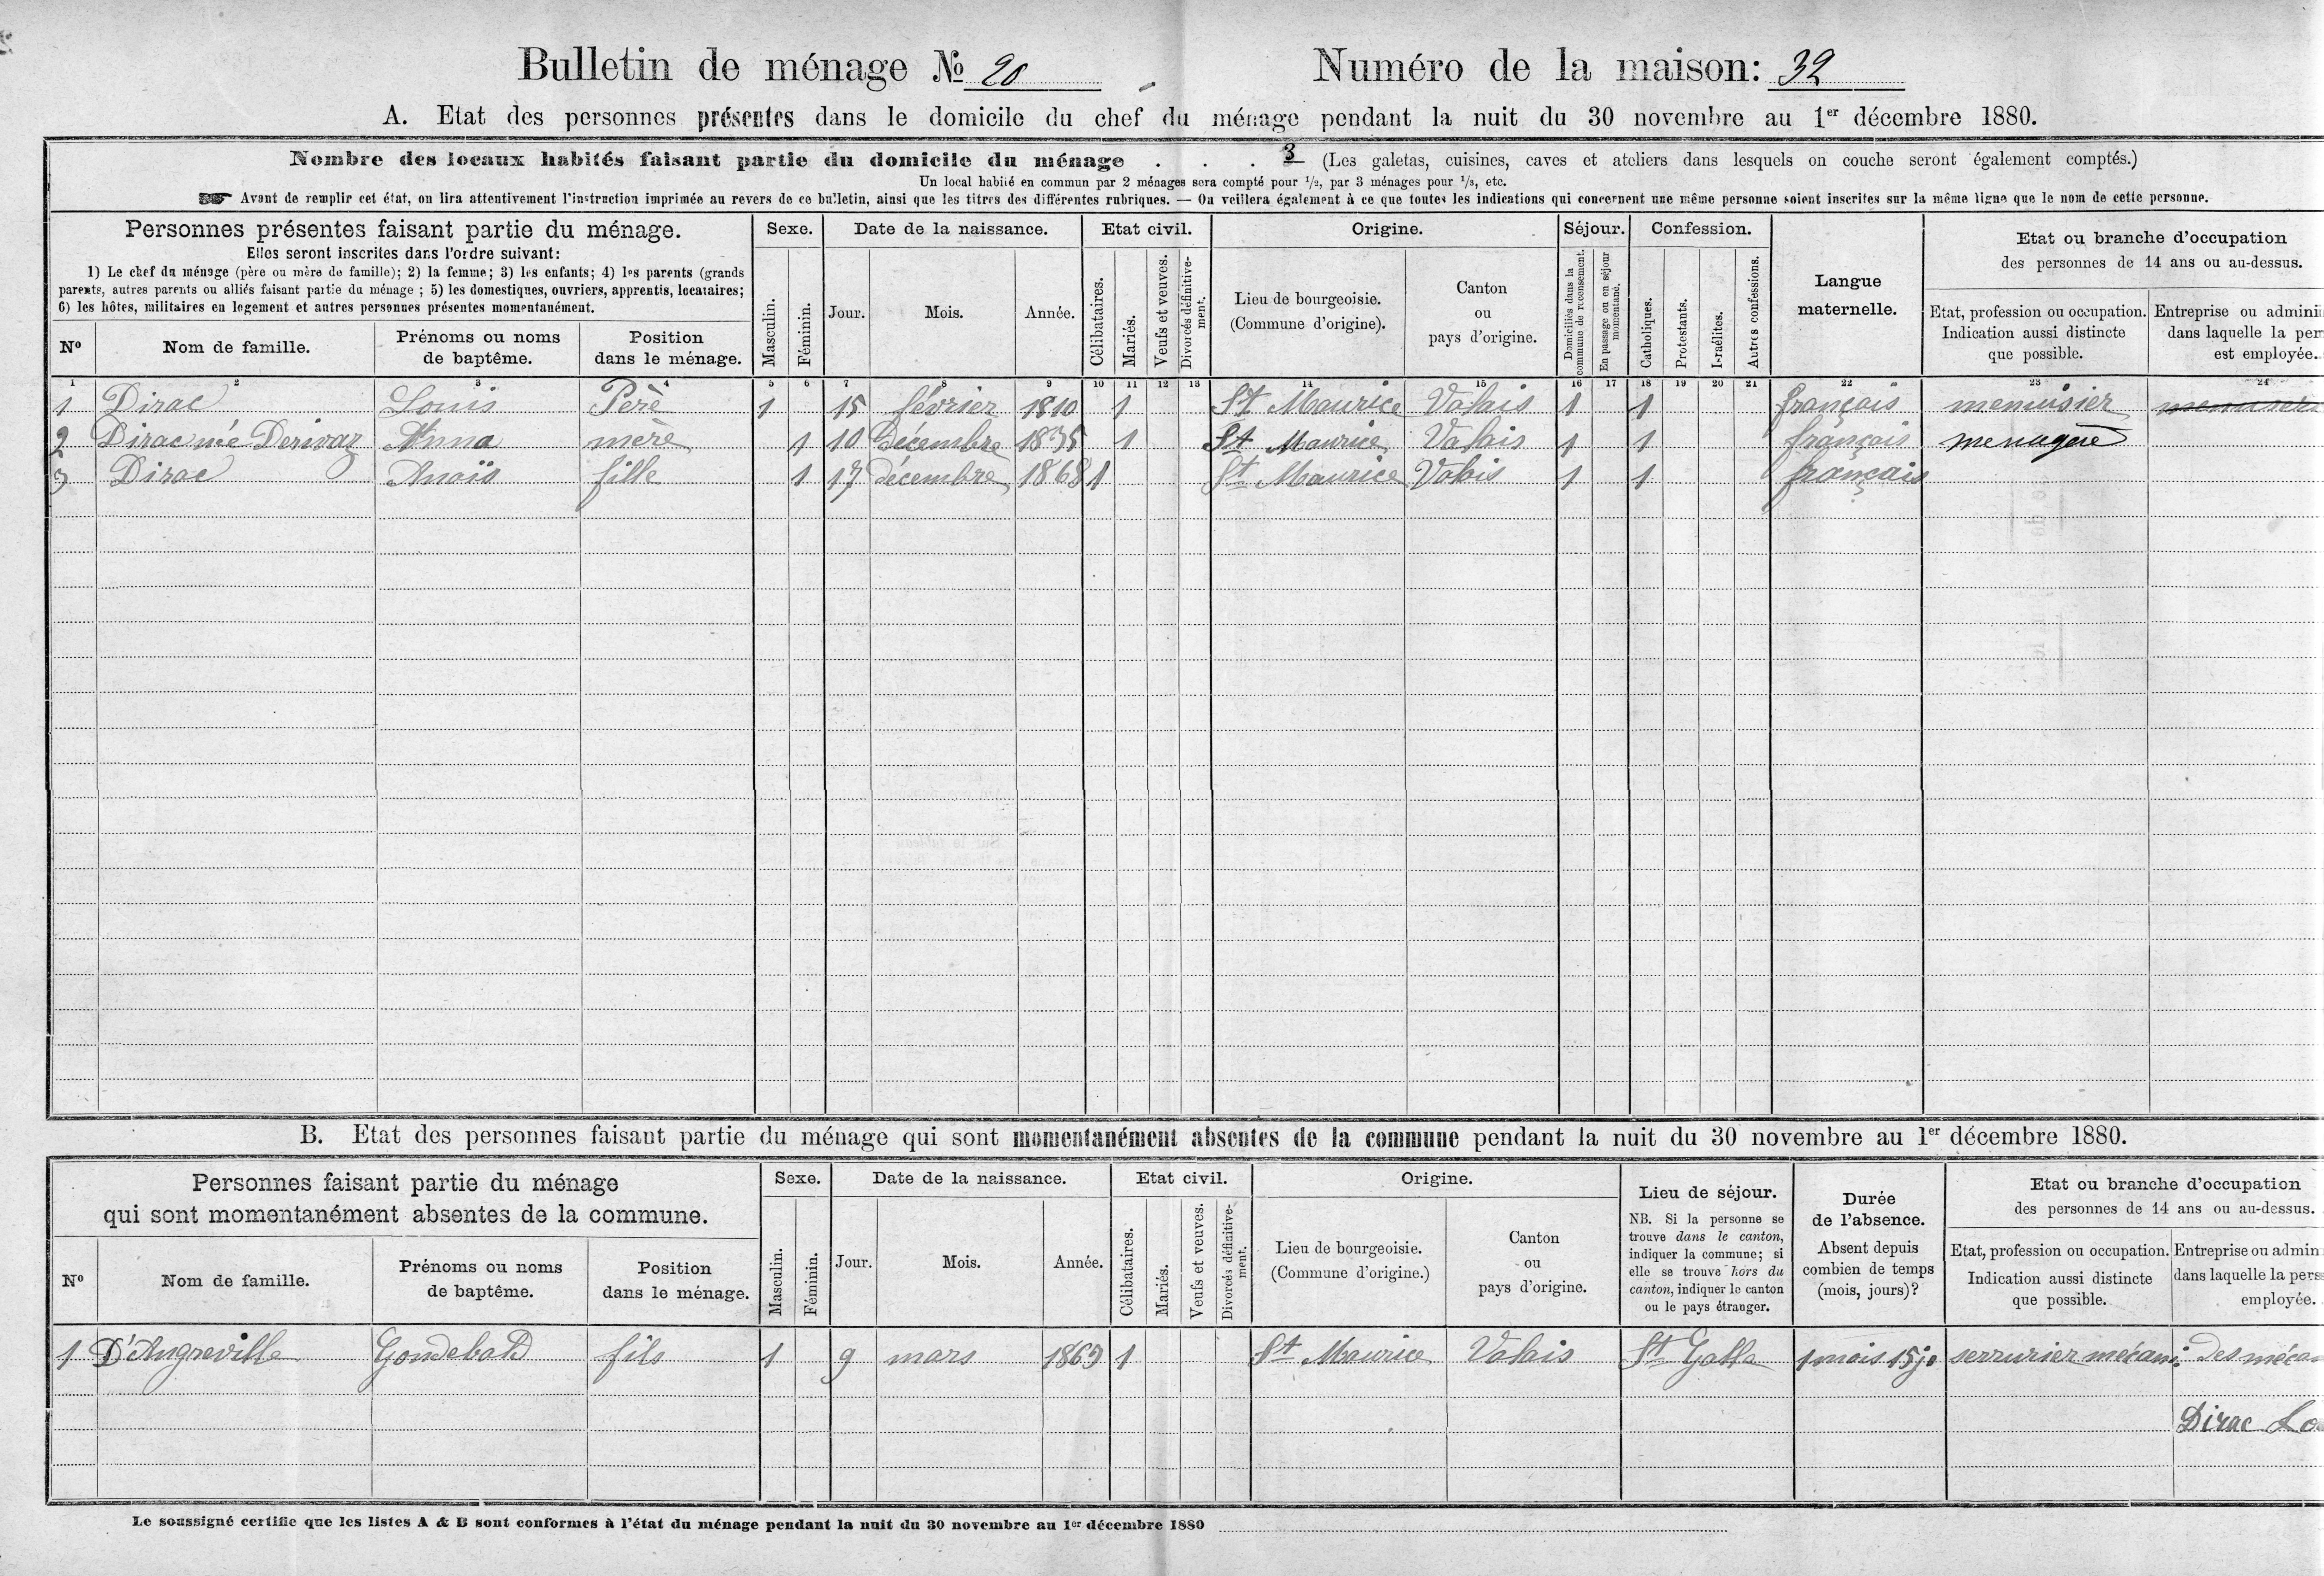 Bulletin de ménage No 20
Numéro de la maison: 32
A. Etat des personnes présentes dans le domicile du chef du ménage pendant la nuit du 30 novembre au 1er décembre 1880.
Nombre des locaux habités faisant partie du domicile du ménage . . . 3 (Les galetas, cuisines, caves et ateliers dans lesquels on couche seront également comptés.)
Un local habité en commun par 2 ménages sera compté pour 1/2, par 3 ménages pour 1/3, etc.
Avant de remplir cet état, on lira attentivement l'instruction imprimée au revers de ce bulletin, ainsi que les titres des différentes rubriques. — On veillera également à ce que toutes les indications qui concernent une même personne soient inscrites sur la même ligne que le nom de cette personne.
Personnes présentes faisant partie du ménage.
Elles seront inscrites dans l'ordre suivant:
1) Le chef du ménage (père ou mère de famille); 2) la femme; 3) les enfants; 4) les parents (grands
parents, autres parents ou alliés faisant partie du ménage ; 5) les domestiques, ouvriers, apprentis, locataires;
6) les hôtes, militaires en logement et autres personnes présentes momentanément.
No
Nom de famille.
Prénoms ou noms
de baptême.
Position
dans le ménage.
Sexe.
Masculin.
Féminin.
Date de la naissance.
Jour.
Mois.
Année.
Etat civil.
Célibataires.
Mariés.
Veufs et veuves.
Divorcés définitive-
ment.
Origine.
Lieu de bourgeoisie.
(Commune d'origine).
Canton
ou
pays d'origine.
Séjour.
Domiciliés dans la
commune de recensement.
En passage ou en séjour
momentané.
Confession.
Catholiques.
Protestants.
Israélites.
Autres confessions.
Langue
maternelle.
Etat ou branche d'occupation
des personnes de 14 ans ou au-dessus.
Etat, profession ou occupation.
Indication aussi distincte
que possible.
Entreprise ou admini
dans laquelle la per
est employée.
1 2 3 4 5 6 7 8 9 10 11 12 13 14 15 16 17 18 19 20 21 22 23 24
1 Dirac Louis Perè 1 15 février 1810 1 St Maurice Valais 1 1 français menuisier
2 Dirac née Derivaz Anna merè 1 10 décembre 1835 1 St Maurice Valais 1 1 français menagere
3 Dirac Anaïs fille 1 17 décembre 1868 1 St Maurice Valais 1 1 français
B. Etat des personnes faisant partie du ménage qui sont momentanément absentes de la commune pendant la nuit du 30 novembre au 1er décembre 1880.
Personnes faisant partie du ménage
qui sont momentanément absentes de la commune.
No
Nom de famille.
Prénoms ou noms
de baptême.
Position
dans le ménage.
Sexe.
Masculin.
Féminin.
Date de la naissance.
Jour.
Mois.
Année.
Etat civil.
Célibataires.
Mariés.
Veufs et veuves.
Divorcés définitive-
ment.
Origine.
Lieu de bourgeoisie.
(Commune d'origine.)
Canton
ou
pays d'origine.
Lieu de séjour.
NB. Si la personne se
trouve dans le canton,
indiquer la commune; si
elle se trouve hors du
canton, indiquer le canton
ou le pays étranger.
Durée
de l'absence.
Absent depuis
combien de temps
(mois, jours)?
Etat ou branche d'occupation
des personnes de 14 ans ou au-dessus.
Etat, profession ou occupation.
Indication aussi distincte
que possible.
Entreprise ou admin
dans laquelle la pers
employée.
1 D'Angreville Gondebald fils 1 9 mars 1863 1 St Maurice Valais St Galle 1 mois 15 jo serrurier mécani. des méca
Dirac Lo
Le soussigné certifie que les listes A & B sont conformes à l'état du ménage pendant la nuit du 30 novembre au 1er décembre 1880